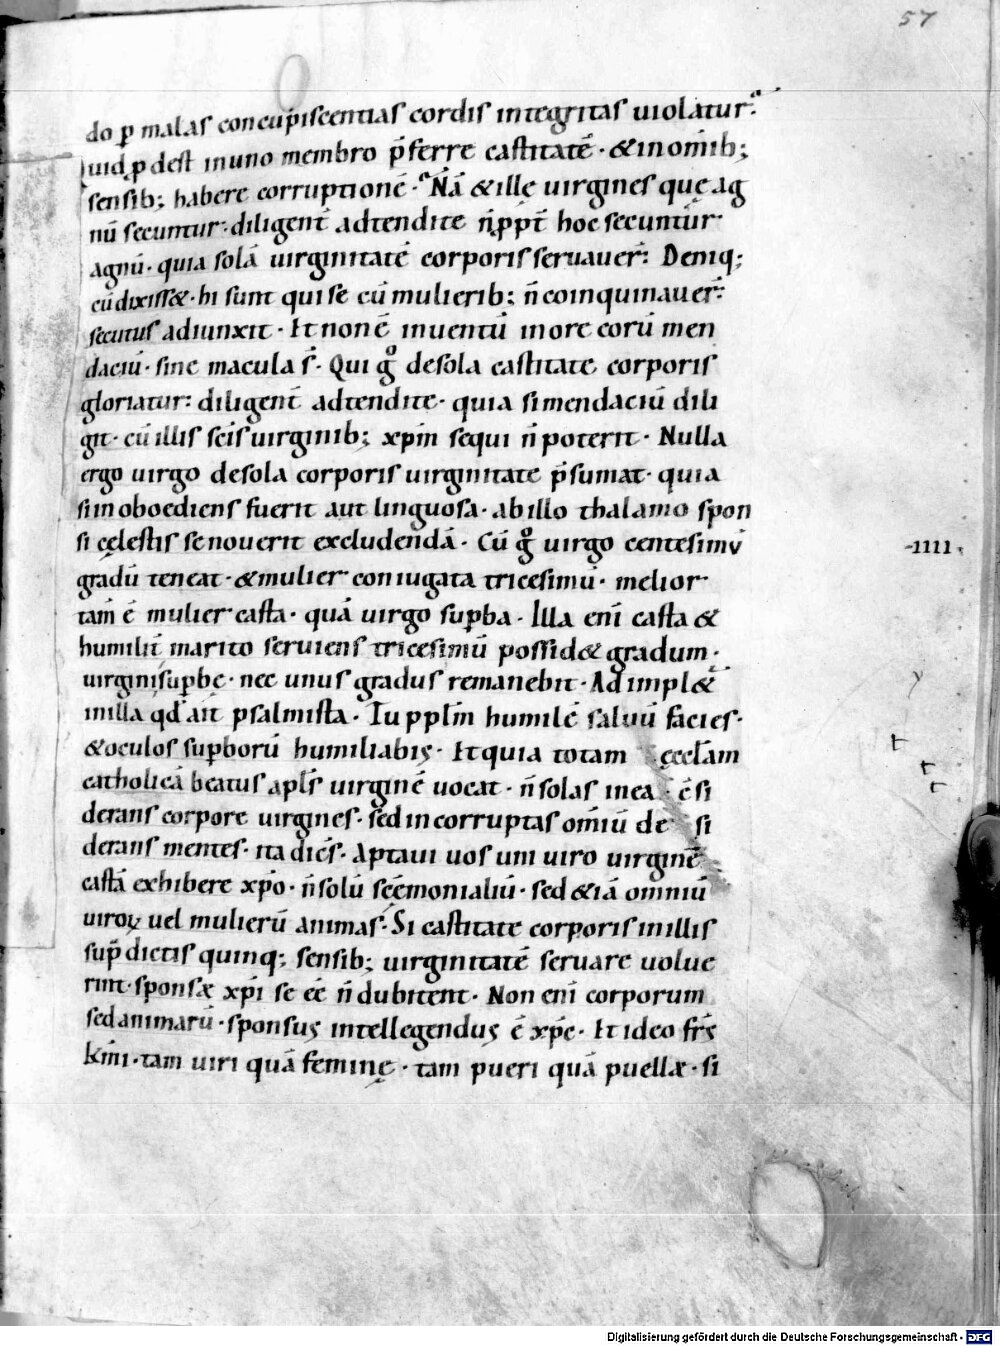 57
do ꝑ malas concupiscentias cordis integritas uiolatur·
uid ꝓdest in uno membro p̄ferre castitatē · & in om̄ib;
sensib; habere corruptionē · Nā & illę uirgines quę ag
nū secuntur· diligent̄ adtendite n̄ ꝓpt̄ hoc secuntur
agnū · quia solā uirginitatē corporis seruauer̄: Deniq;
cū dixiss& · hi sunt qui se cū mulierib; n̄ coinquinauer̄:
secutus adiunxit · Et non ē inuentū in ore eorū men
daciū · sine macula s̄ · Qui gͦ de sola castitate corporis
gloriatur: diligent̄ adtendite · quia si mendaciū dili
git · cū illis sc̄is uirginib; xp̄m sequi n̄ poterit · Nulla
ergo uirgo de sola corporis uirginitate p̄sumat · quia
si inoboediens fuerit aut linguosa · ab illo thalamo spon
si cęlestis se nouerit excludendā · Cū gͦ uirgo centesimū
-IIII·
gradū teneat · & mulier coniugata tricesimū · melior
tam̄ ē mulier casta · quā uirgo supꝑba · Illa eni̅ casta &
humilit̄ marito seruiens tricesimū possid& gradum ·
uirgini supꝑbę · nec unus gradus remanebit · Adimpl&
in illa qd̄ ait psalmista · Tu pplm̄ humilē saluū facies ·
& oculos supꝑborū humiliabis · Et quia totam ęccl̄am
catholicā beatus apl̄s uirginē uocat · n̄ solas in ea cōsi
derans corpore uirgines · sed incorruptas om̄iū de si
derans mentes · ita dicēs · Aptaui uos uni uiro uirginē
castā exhibere xp̄o · n̄ solū sc̄ęmonialiū · sed & iā omniū
uiroꝝ uel mulierū animas · Si castitate corporis in illis
sup̄dictis quinq; sensib; uirginitatē seruare uolue
rint · sponsæ xp̄i se ēē n̄ dubitent · Non eni̅ corporum
sed animarū · sponsus intellegendus ē xp̄c · Et ideo fr̄s
km̄i · tam uiri quā feminę · tam pueri quā puellæ · si
Digitalisierung gefördert durch die Deutsche Forschungsgemeinschaft - DFG